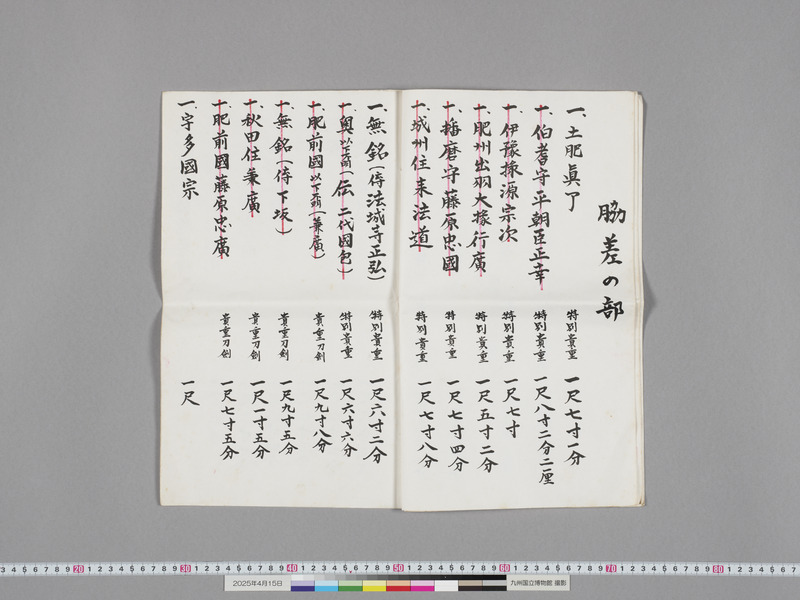 脇差の部
一、土肥眞了 特別貴重 一尺七寸一分
一、伯耆守平朝臣正幸 特別貴重 一尺八寸二分二厘
一、伊豫掾源宗次 特別貴重 一尺七寸
一、肥州出羽大掾行廣 特別貴重 一尺五寸二分
一、播磨守藤原忠國 特別貴重 一尺七寸四分
一、城州住来法道 特別貴重 一尺七寸八分
一、無銘(侍法城寺正弘) 特別貴重 一尺六寸二分
一、奥以下切(伝二代国包) 特別貴重 一尺六寸六分
一、肥前國以下切(兼廣) 貴重刀剣 一尺九寸八分
一、無銘(侍下坂) 貴重刀剣 一尺九寸五分
一、秋田住兼廣 貴重刀剣 一尺一寸五分
一、肥前國藤原忠廣 貴重刀剣 一尺七寸五分
一、宇多國宗 一尺
2025年4月15日
九州国立博物館 撮影